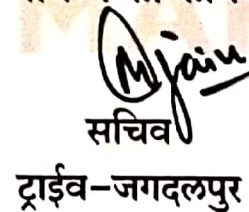 M Jain
सचिव
ट्राईव–जगदलपुर